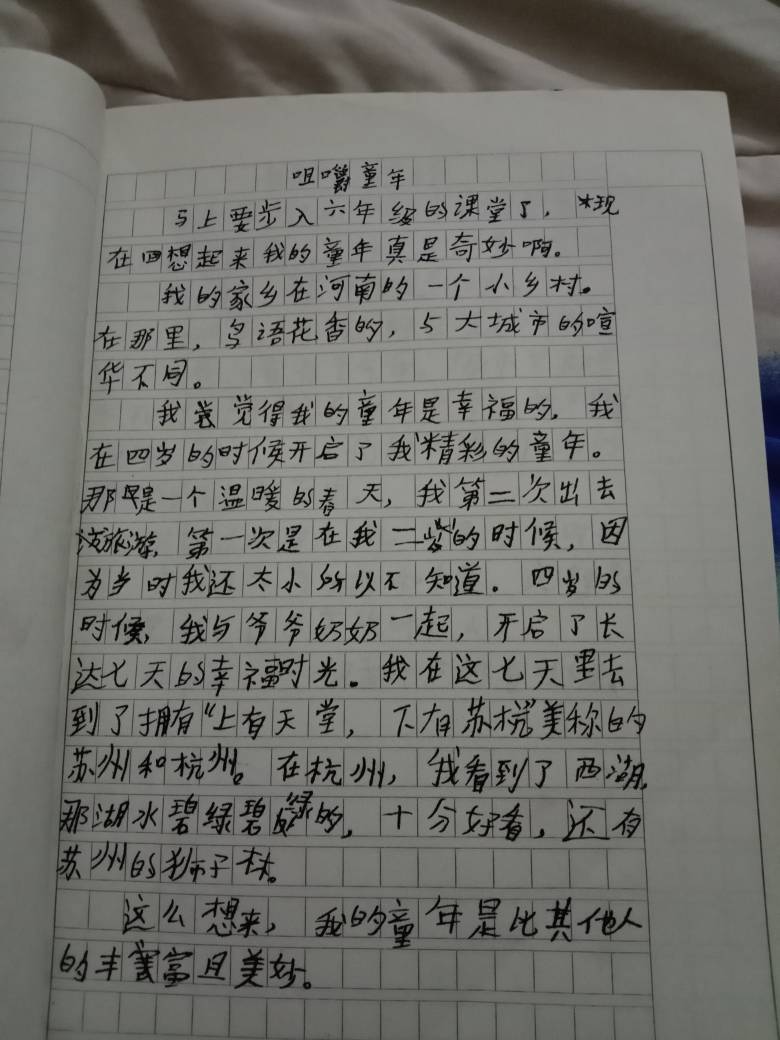 咀嚼童年
马上要步入六年级的课堂了，现
在回想起来我的童年真是奇妙啊。
我的家乡在河南的一个小乡村。
在那里，鸟语花香的，与大城市的喧
华不同。
我觉得我的童年是幸福的，我
在四岁的时候开启了我精彩的童年。
那是一个温暖的春天，我第二次出去
旅游，第一次是在我二岁的时候，因
为当时我还太小所以不知道．四岁的
时候，我与爷爷奶奶一起，开启了长
达七天的幸福时光。我在这七天里去
到了拥有“上有天堂，下有苏杭”美称的
苏州和杭州。在杭州，我看到了西湖，
那湖水碧绿碧绿的，十分好看，还有
苏州的狮子林。
这么想来，我的童年是比其他人
的丰富且美妙。